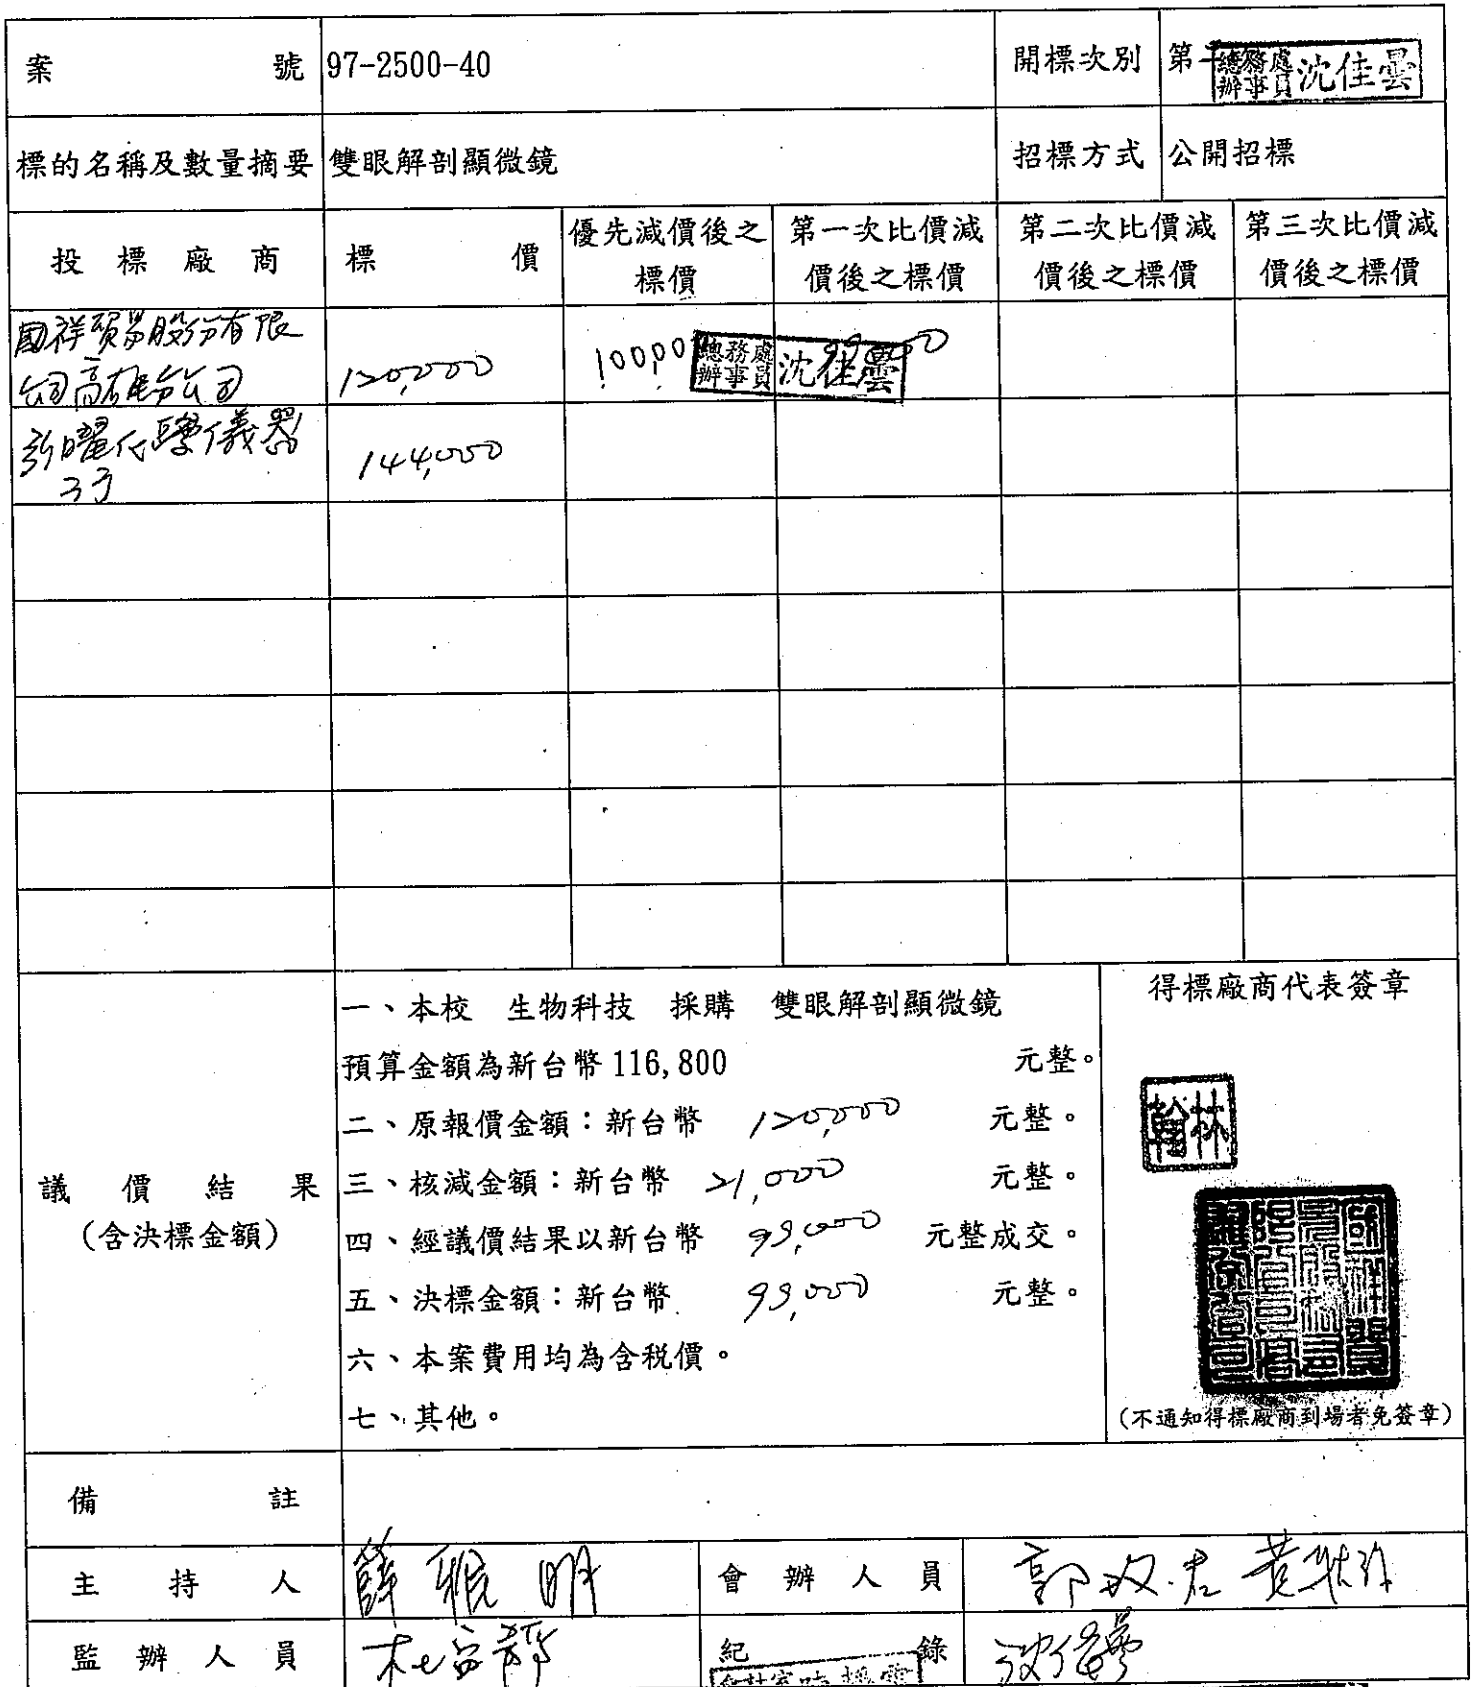 案 號 97-2500-40 開標次別 第
總務處 辦事員 沈佳曇
標的名稱及數量摘要 雙眼解剖顯微鏡 招標方式 公開招標
投標廠商 標價 優先減價後之標價 第一次比價減價後之標價 第二次比價減價後之標價 第三次比價減價後之標價
國祥貿易股份有限
公司高雄分公司 120,000 100,00
總務處 辦事員 沈佳曇
化學儀器
行 144,000
一、本校 生物科技 採購 雙眼解剖顯微鏡
預算金額為新台幣 116,800 元整。
二、原報價金額：新台幣 120,000 元整。
三、核減金額：新台幣 21,000 元整。
四、經議價結果以新台幣 99,000 元整成交。
五、決標金額：新台幣 99,000 元整。
六、本案費用均為含稅價。
七、其他。
議價結果
(含決標金額)
得標廠商代表簽章
林翰
(不通知得標廠商到場者免簽章)
備 註
主持人 薛雅明 會辦人員
監辦人員 紀錄